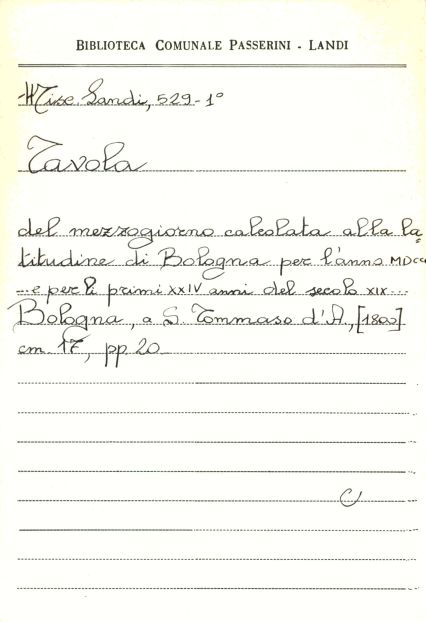 BIBLIOTECA COMUNALE PASSERINI - LANDI
Misc. Landi, 529-1°
Tavola
del mezzogiorno calcolata alla la=
titudine di Bologna per l'anno MDCCC
... e per li primi XXIV anni del secolo XIX ...
Bologna, a S. Tommaso d'A., [1800]
cm. 17, pp 20
C